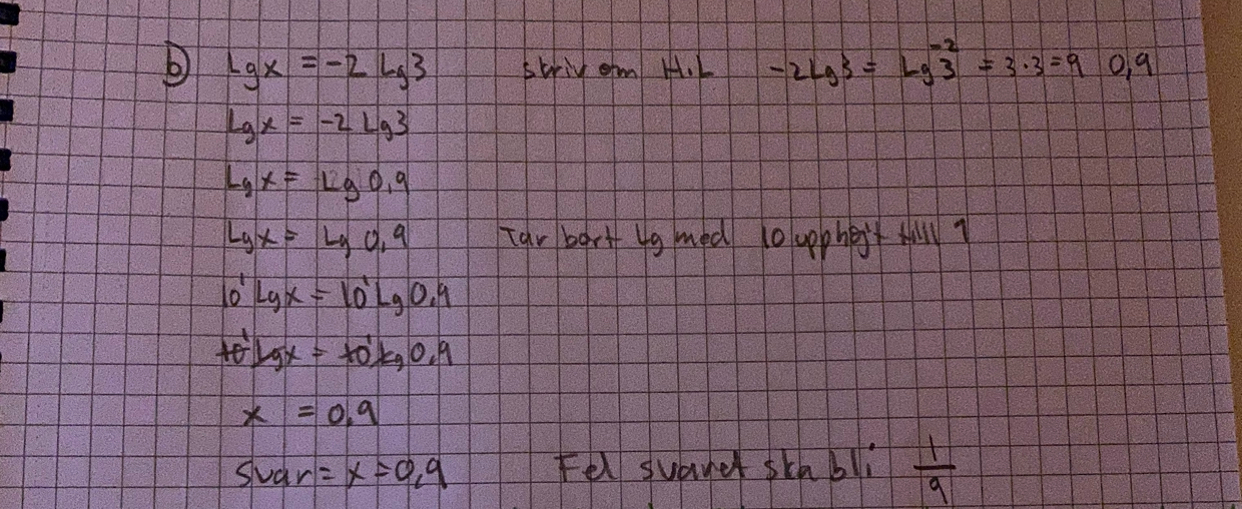 b) Lgx = -2 Lg3 skriv om H.L -2Lg3 = Lg3⁻² = 3·3=9 0,9
Lgx = -2 Lg3
Lgx = Lg 0,9
Lgx = Lg 0,9 Tar bort Lg med 10 upphöjt till 1
10¹ Lgx = 10¹ Lg 0,9
10¹ Lgx = 10¹ Lg 0,9
x = 0,9
Svar = x = 0,9 Fel svaret ska bli 1/9